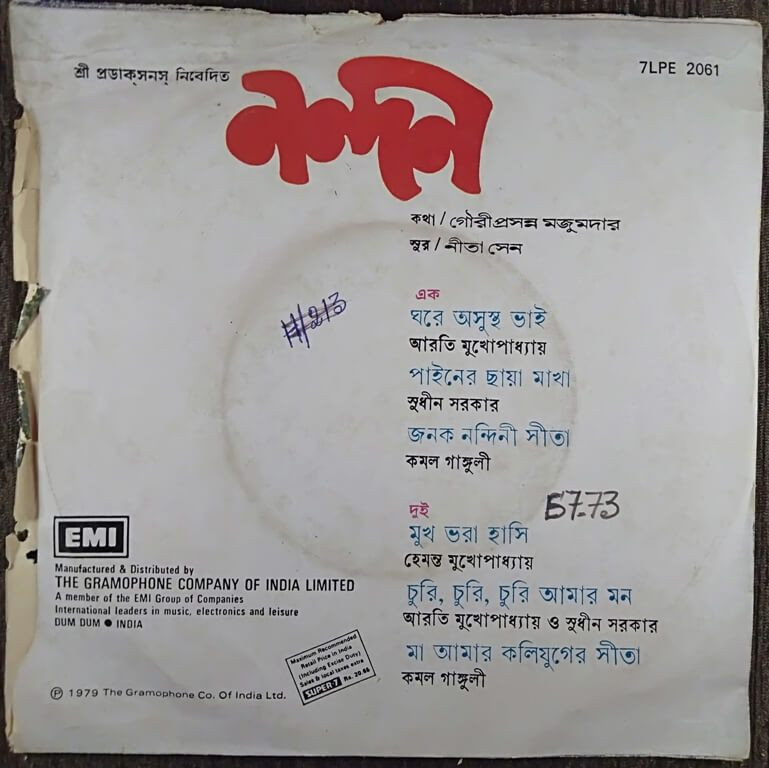 শ্রী প্রডাক্‌সনস্ নিবেদিত
7LPE 2061
নন্দন
কথা / গৌরীপ্রসন্ন মজুমদার
সুর / নীতা সেন
এক
ঘরে অসুস্থ ভাই
আরতি মুখোপাধ্যায়
পাইনের ছায়া মাখা
সুধীন সরকার
জনক নন্দিনী সীতা
কমল গাঙ্গুলী
দুই
57.73
মুখ ভরা হাসি
হেমন্ত মুখোপাধ্যায়
চুরি, চুরি, চুরি আমার মন
আরতি মুখোপাধ্যায় ও সুধীন সরকার
মা আমার কলিযুগের সীতা
কমল গাঙ্গুলী
EMI
Manufactured & Distributed by
THE GRAMOPHONE COMPANY OF INDIA LIMITED
A member of the EMI Group of Companies
International leaders in music, electronics and leisure
DUM DUM ● INDIA
Maximum Recommended
Retail Price in India
(Including Excise Duty)
Sales & local taxes extra
SUPER 7 Rs. 20.66
Ⓟ 1979 The Gramophone Co. Of India Ltd.